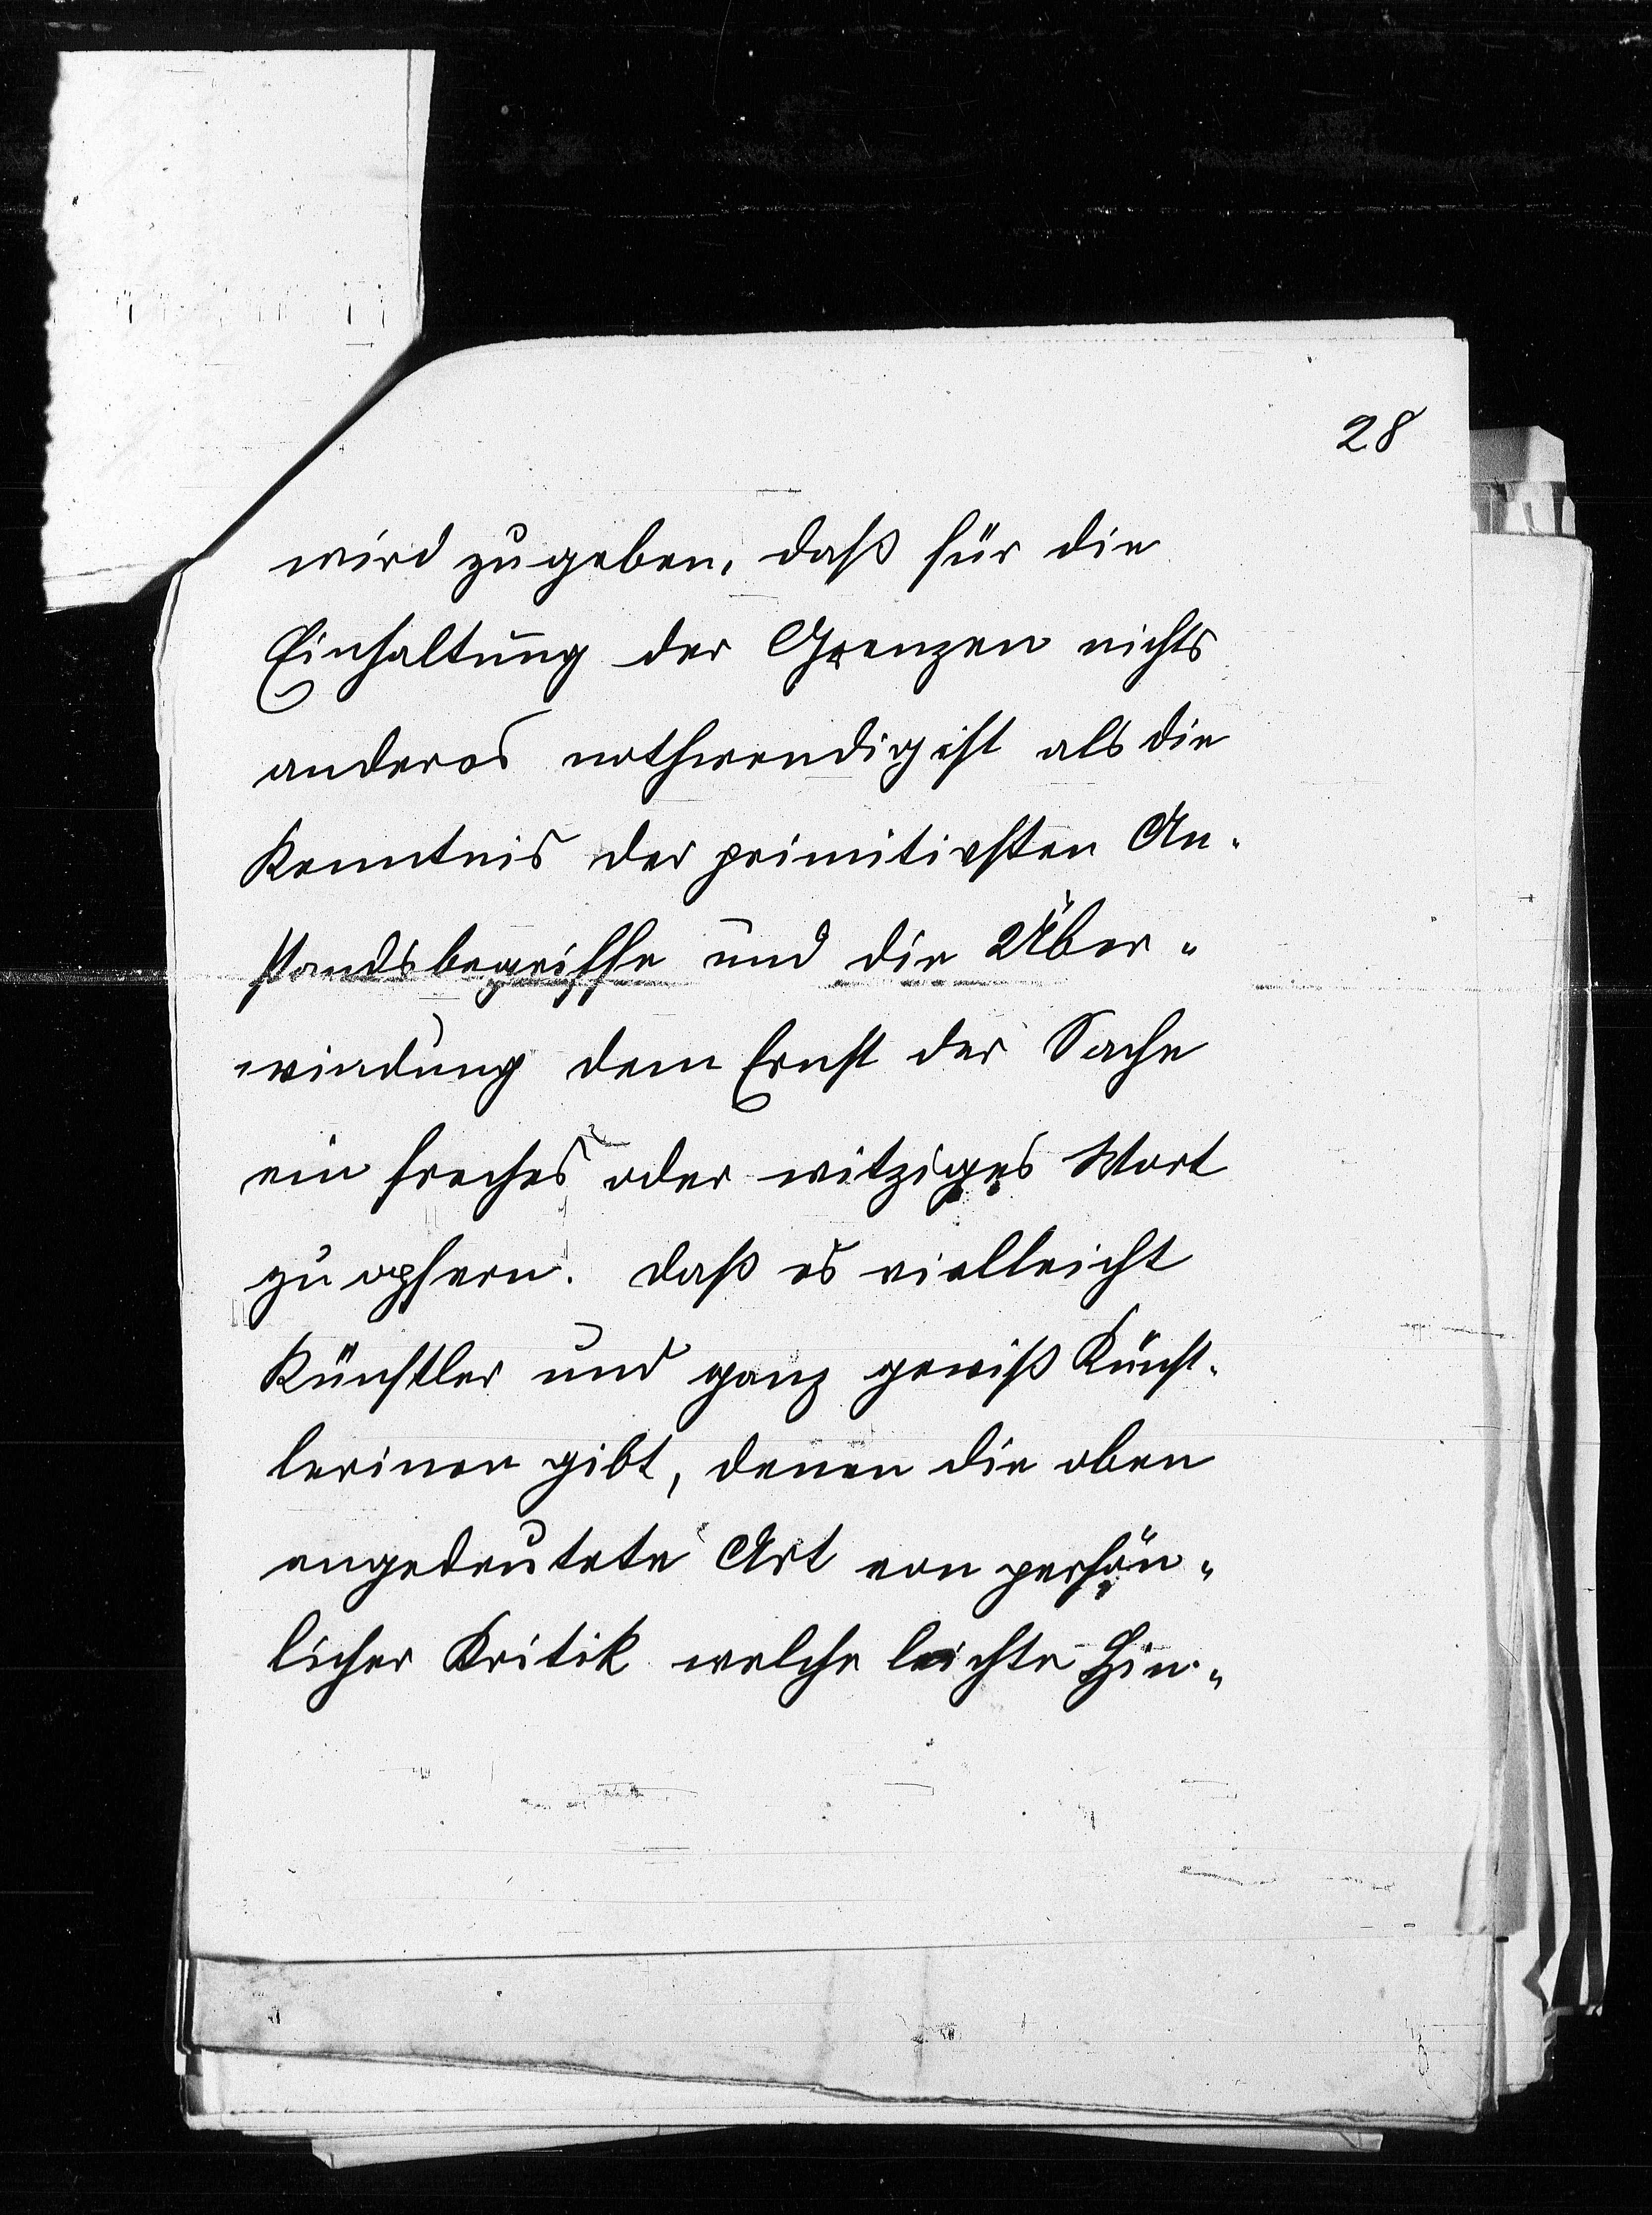 28
wird zugeben, daß für die
Einhaltung der Grenzen nichts
anderes nothwendig ist als die
Kenntnis der primitivsten An-
standsbegriffe und die Über-
windung dem Ernst der Sache
ein freches oder witziges Wort
zu opfern. daß es vielleicht
Künstler und ganz gewiß Künst-
lerinen gibt, denen die oben
angedeutete Art von persön-
licher Kritik welche leichte Hin-